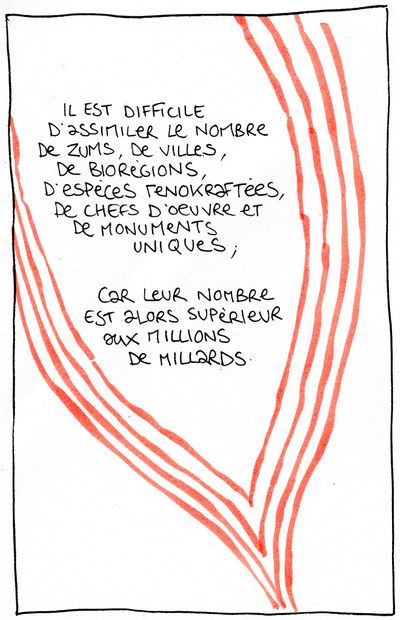 IL EST DIFFICILE
D'ASSIMILER LE NOMBRE
DE ZUMS, DE VILLES,
DE BIORÉGIONS,
D'ESPÈCES GENOKRAFTÉES,
DE CHEFS D'OEUVRE ET
DE MONUMENTS
UNIQUES;
CAR LEUR NOMBRE
EST ALORS SUPÉRIEUR
AUX MILLIONS
DE MILLARDS.